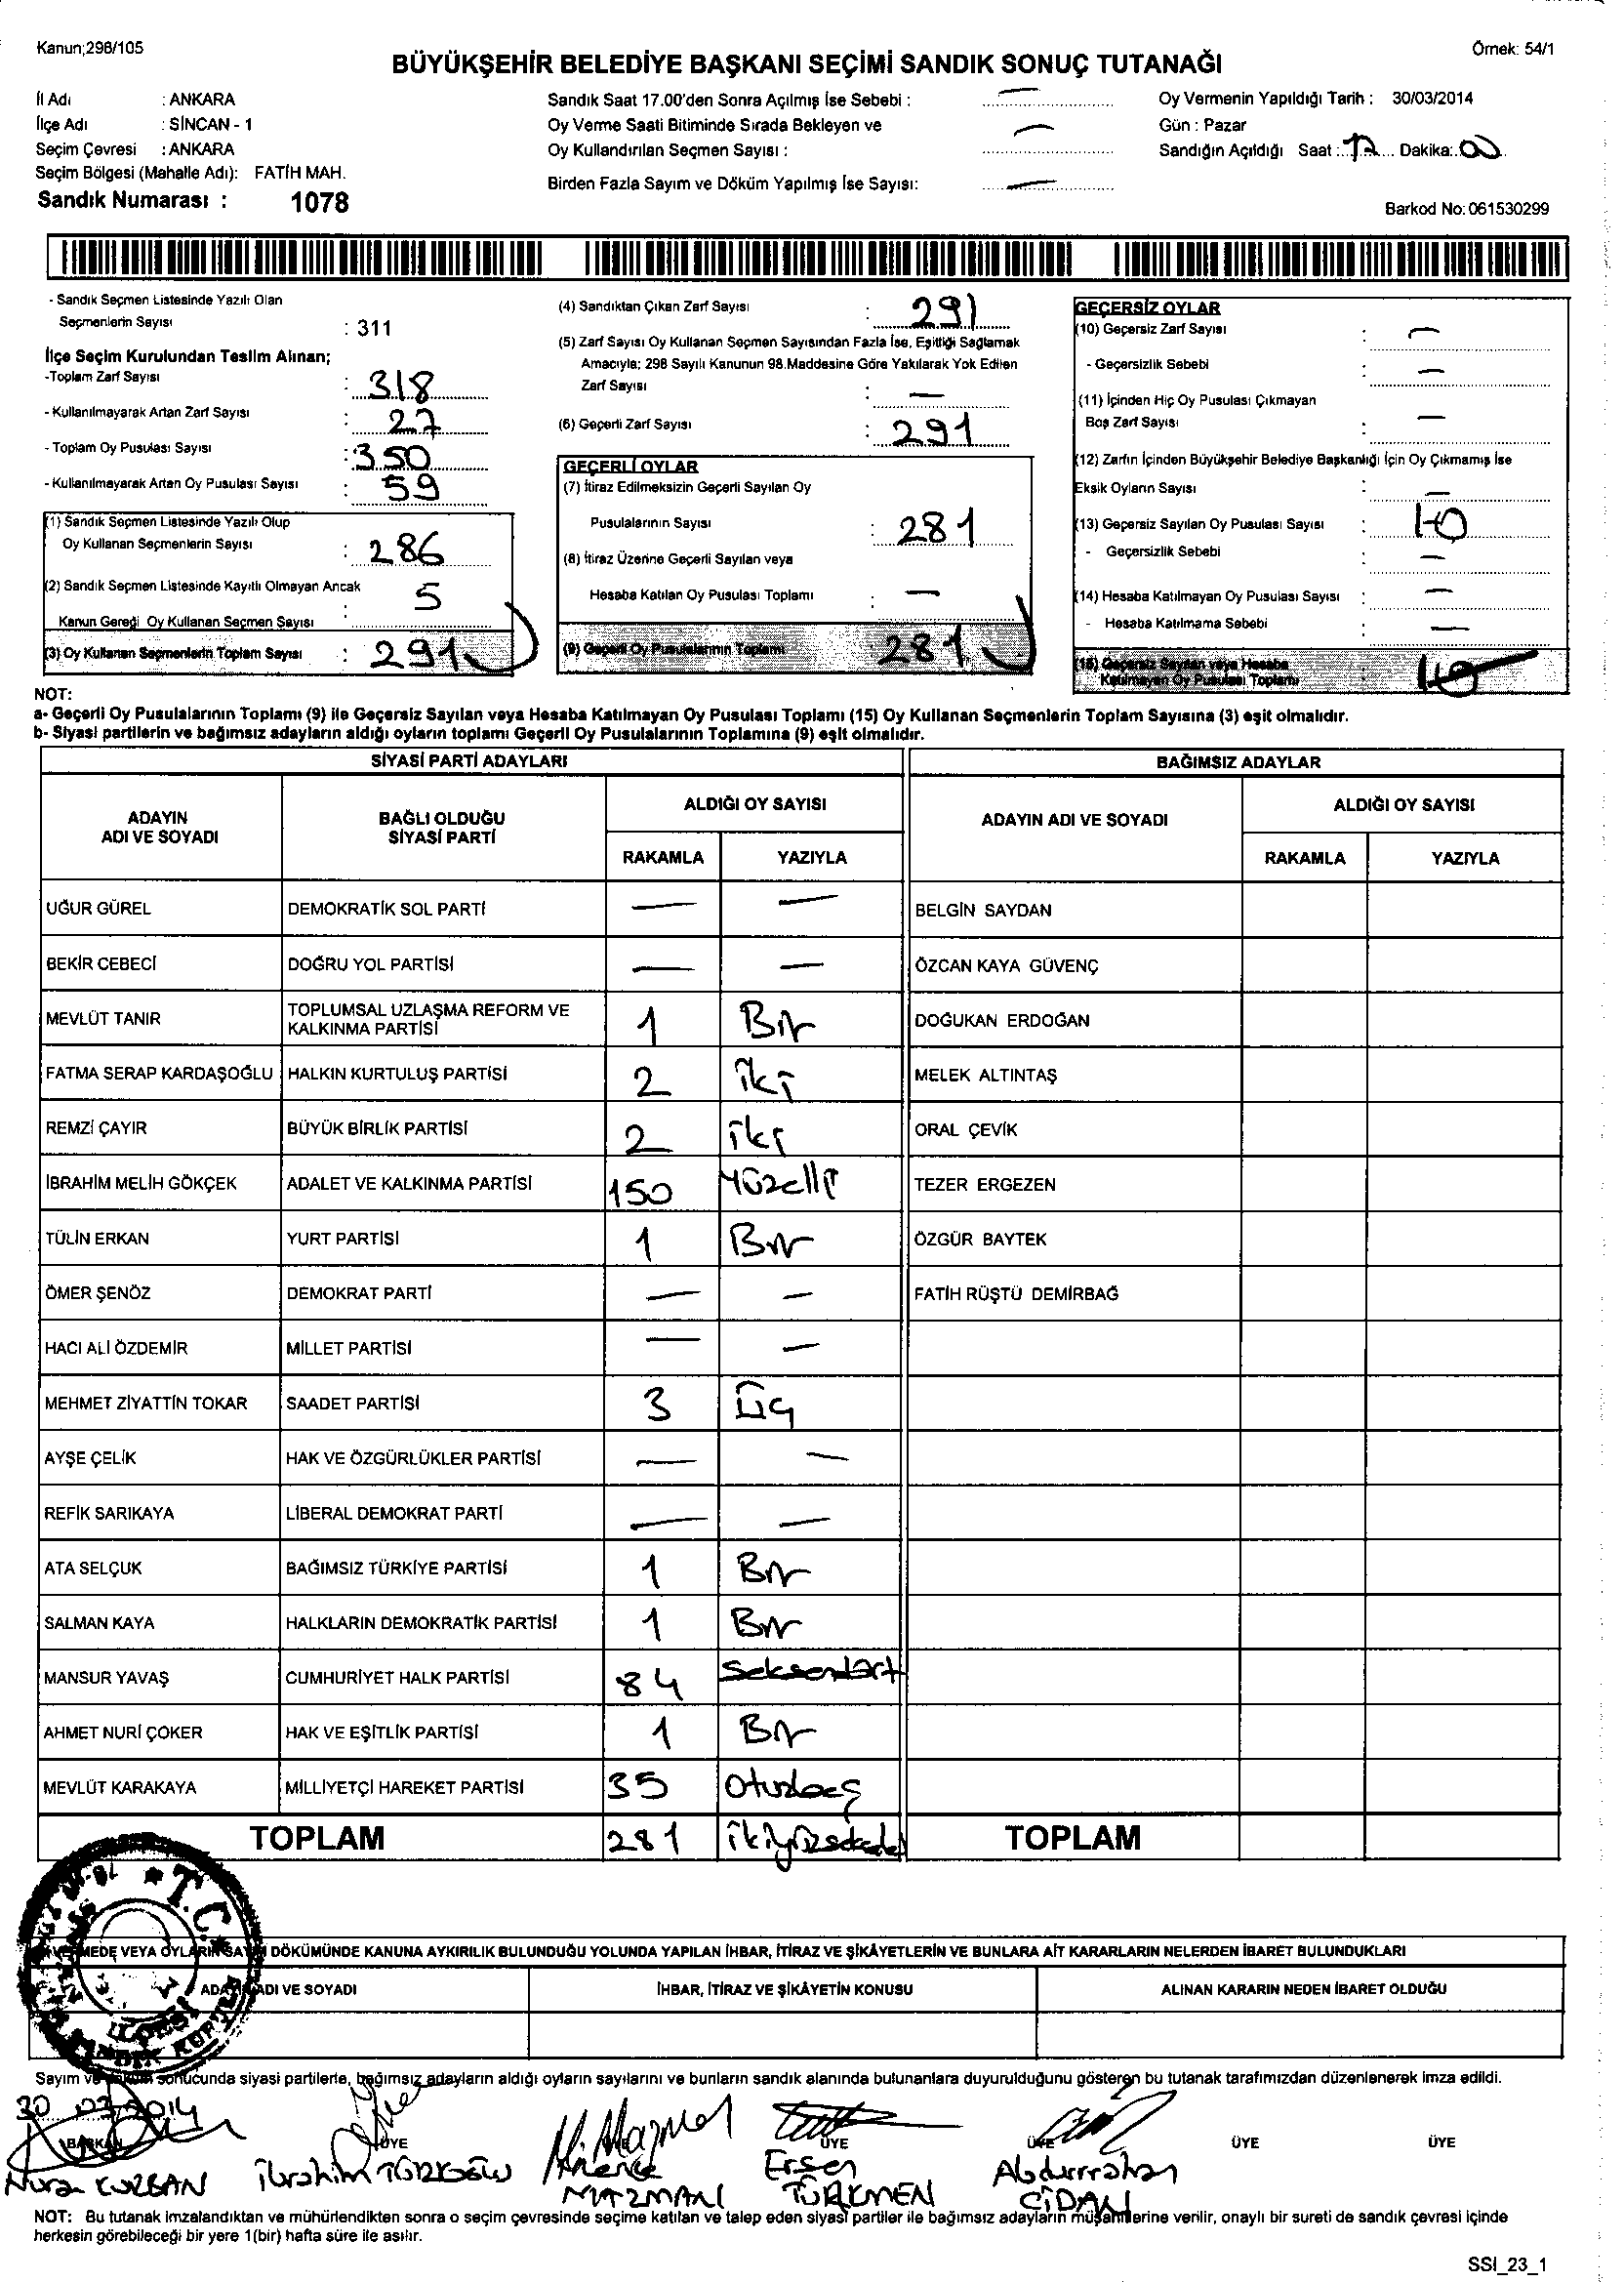 Kanun;298/105
Örnek: 54/1
BÜYÜKŞEHİR BELEDİYE BAŞKANI SEÇİMİ SANDIK SONUÇ TUTANAĞI
İl Adı : ANKARA
İlçe Adı : SİNCAN - 1
Seçim Çevresi : ANKARA
Seçim Bölgesi (Mahalle Adı): FATİH MAH.
Sandık Numarası : 1078
Sandık Saat 17.00'den Sonra Açılmış İse Sebebi : —
Oy Verme Saati Bitiminde Sırada Bekleyen ve
Oy Kullandırılan Seçmen Sayısı : —
Birden Fazla Sayım ve Döküm Yapılmış İse Sayısı: —
Oy Vermenin Yapıldığı Tarih : 30/03/2014
Gün : Pazar
Sandığın Açıldığı Saat : 17 Dakika: 00
Barkod No: 061530299
- Sandık Seçmen Listesinde Yazılı Olan
Seçmenlerin Sayısı : 311
İlçe Seçim Kurulundan Teslim Alınan;
-Toplam Zarf Sayısı : 318
- Kullanılmayarak Artan Zarf Sayısı : 27
- Toplam Oy Pusulası Sayısı : 350
- Kullanılmayarak Artan Oy Pusulası Sayısı : 59
(1) Sandık Seçmen Listesinde Yazılı Olup
Oy Kullanan Seçmenlerin Sayısı : 286
(2) Sandık Seçmen Listesinde Kayıtlı Olmayan Ancak
Kanun Gereği Oy Kullanan Seçmen Sayısı : 5
(3) Oy Kullanan Seçmenlerin Toplam Sayısı : 291
(4) Sandıktan Çıkan Zarf Sayısı : 291
(5) Zarf Sayısı Oy Kullanan Seçmen Sayısından Fazla İse, Eşitliği Sağlamak
Amacıyla; 298 Sayılı Kanunun 98.Maddesine Göre Yakılarak Yok Edilen
Zarf Sayısı : —
(6) Geçerli Zarf Sayısı : 291
GEÇERLİ OYLAR
(7) İtiraz Edilmeksizin Geçerli Sayılan Oy
Pusulalarının Sayısı : 281
(8) İtiraz Üzerine Geçerli Sayılan veya
Hesaba Katılan Oy Pusulası Toplamı : —
(9) Geçerli Oy Pusulalarının Toplamı 281
GEÇERSİZ OYLAR
(10) Geçersiz Zarf Sayısı : —
- Geçersizlik Sebebi : —
(11) İçinden Hiç Oy Pusulası Çıkmayan
Boş Zarf Sayısı : —
(12) Zarfın İçinden Büyükşehir Belediye Başkanlığı İçin Oy Çıkmamış İse
Eksik Oyların Sayısı : —
(13) Geçersiz Sayılan Oy Pusulası Sayısı : 10
- Geçersizlik Sebebi : —
(14) Hesaba Katılmayan Oy Pusulası Sayısı : —
- Hesaba Katılmama Sebebi : —
(15) Geçersiz Sayılan veya Hesaba
Katılmayan Oy Pusulası Toplamı : 10
NOT:
a- Geçerli Oy Pusulalarının Toplamı (9) ile Geçersiz Sayılan veya Hesaba Katılmayan Oy Pusulası Toplamı (15) Oy Kullanan Seçmenlerin Toplam Sayısına (3) eşit olmalıdır.
b- Siyasi partilerin ve bağımsız adayların aldığı oyların toplamı Geçerli Oy Pusulalarının Toplamına (9) eşit olmalıdır.
SİYASİ PARTİ ADAYLARI BAĞIMSIZ ADAYLAR
ADAYIN ADI VE SOYADI BAĞLI OLDUĞU SİYASİ PARTİ ALDIĞI OY SAYISI ADAYIN ADI VE SOYADI ALDIĞI OY SAYISI
RAKAMLA YAZIYLA RAKAMLA YAZIYLA
UĞUR GÜREL DEMOKRATİK SOL PARTİ — — BELGİN SAYDAN
BEKİR CEBECİ DOĞRU YOL PARTİSİ — — ÖZCAN KAYA GÜVENÇ
MEVLÜT TANIR TOPLUMSAL UZLAŞMA REFORM VE KALKINMA PARTİSİ 1 Bir DOĞUKAN ERDOĞAN
FATMA SERAP KARDAŞOĞLU HALKIN KURTULUŞ PARTİSİ 2 iki MELEK ALTINTAŞ
REMZİ ÇAYIR BÜYÜK BİRLİK PARTİSİ 2 iki ORAL ÇEVİK
İBRAHİM MELİH GÖKÇEK ADALET VE KALKINMA PARTİSİ 150 Yüzelli TEZER ERGEZEN
TÜLİN ERKAN YURT PARTİSİ 1 Bir ÖZGÜR BAYTEK
ÖMER ŞENÖZ DEMOKRAT PARTİ — — FATİH RÜŞTÜ DEMİRBAĞ
HACI ALİ ÖZDEMİR MİLLET PARTİSİ — —
MEHMET ZİYATTİN TOKAR SAADET PARTİSİ 3 Üç
AYŞE ÇELİK HAK VE ÖZGÜRLÜKLER PARTİSİ — —
REFİK SARIKAYA LİBERAL DEMOKRAT PARTİ — —
ATA SELÇUK BAĞIMSIZ TÜRKİYE PARTİSİ 1 Bir
SALMAN KAYA HALKLARIN DEMOKRATİK PARTİSİ 1 Bir
MANSUR YAVAŞ CUMHURİYET HALK PARTİSİ 84 Seksendört
AHMET NURİ ÇOKER HAK VE EŞİTLİK PARTİSİ 1 Bir
MEVLÜT KARAKAYA MİLLİYETÇİ HAREKET PARTİSİ 35 Otuzbeş
TOPLAM 281 TOPLAM
T.C.
VEYA OYLARIN SAYIM DÖKÜMÜNDE KANUNA AYKIRILIK BULUNDUĞU YOLUNDA YAPILAN İHBAR, İTİRAZ VE ŞİKÂYETLERİN VE BUNLARA AİT KARARLARIN NELERDEN İBARET BULUNDUKLARI
ADAYIN ADI VE SOYADI İHBAR, İTİRAZ VE ŞİKÂYETİN KONUSU ALINAN KARARIN NEDEN İBARET OLDUĞU
Sayım ve döküm sonucunda siyasi partilerle, bağımsız adayların aldığı oyların sayılarını ve bunların sandık alanında bulunanlara duyurulduğunu gösteren bu tutanak tarafımızdan düzenlenerek imza edildi.
30 03 2014
BAŞKAN ÜYE ÜYE ÜYE ÜYE ÜYE
İbrahim MAZMAN Ersen TÜRKMEN Abdurrahan CİDAN
NOT: Bu tutanak imzalandıktan ve mühürlendikten sonra o seçim çevresinde seçime katılan ve talep eden siyasi partiler ile bağımsız adayların müşahitlerine verilir, onaylı bir sureti de sandık çevresi içinde
herkesin görebileceği bir yere 1(bir) hafta süre ile asılır.
SSI_23_1